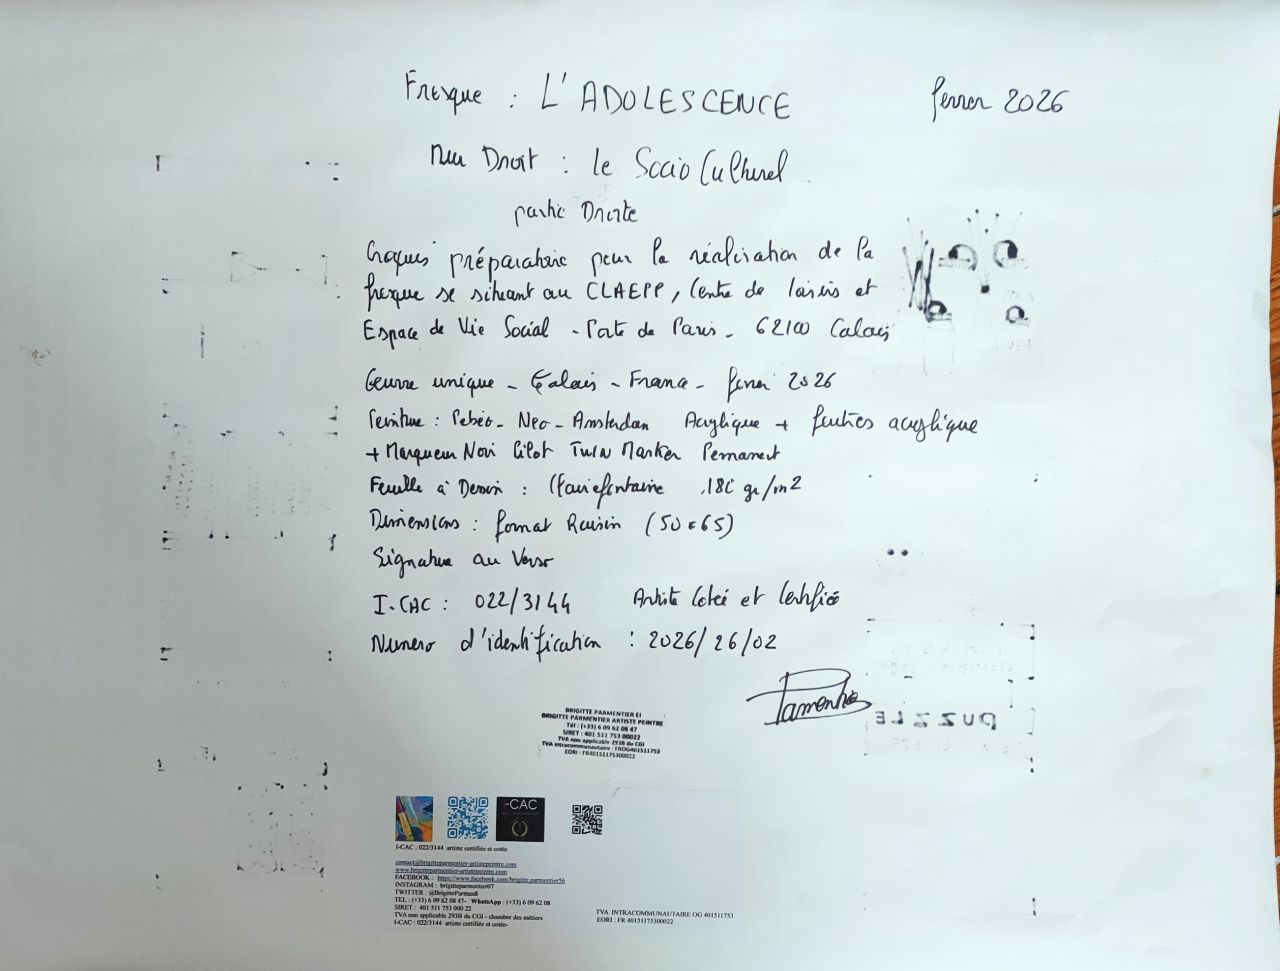 Fresque : L'ADOLESCENCE
fevrier 2026
Mur Droit : le Socio Culturel
partie Droite
Croquis préparatoire pour la réalisation de la
fresque se situant au CLAEPP, Centre de loisirs et
Espace de Vie Social - Porte de Paris - 62100 Calais
Oeuvre unique - Calais - France - fevrier 2026
Peinture : Pebeo - Neo - Amsterdam Acrylique + feutres acrylique
+ Marqueur Noir Pilot Twin Marker Permanent
Feuille à Dessin : Clairefontaine 180 gr/m2
Dimensions : format Raisin (50 x 65)
Signature au Verso
I-CAC : 022/3144 Artiste Cotée et Certifiée
Numero d'identification : 2026/26/02
Parmentier
PUZZLE
BRIGITTE PARMENTIER EI
BRIGITTE PARMENTIER ARTISTE PEINTRE
Tél : (+33) 6 09 62 08 47
SIRET : 401 511 753 00022
TVA non applicable 293B du CGI
TVA intracommunautaire : FROG401511753
EORI : FR40151175300022
I-CAC
I-CAC : 022/3144 artiste certifiée et cotée
contact@brigitteparmentier-artistepeintre.com
www.brigitteparmentier-artistepeintre.com
FACEBOOK : https://www.facebook.com/brigitte.parmentier56
INSTAGRAM : brigitteparmentier07
TWITTER : @BrigitteParmen8
TEL : (+33) 6 09 62 08 47- WhatsApp : (+33) 6 09 62 08
SIRET : 401 511 753 000 22
TVA non applicable 293B du CGI - chambre des métiers
I-CAC : 022/3144 artiste certifiée et cotée-
TVA INTRACOMMUNAUTAIRE OG 401511753
EORI : FR 40151175300022